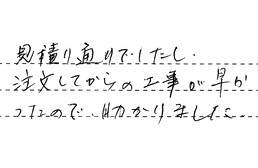 見積り通りでしたし、
注文してからの工事が早か
ったので、助かりました。